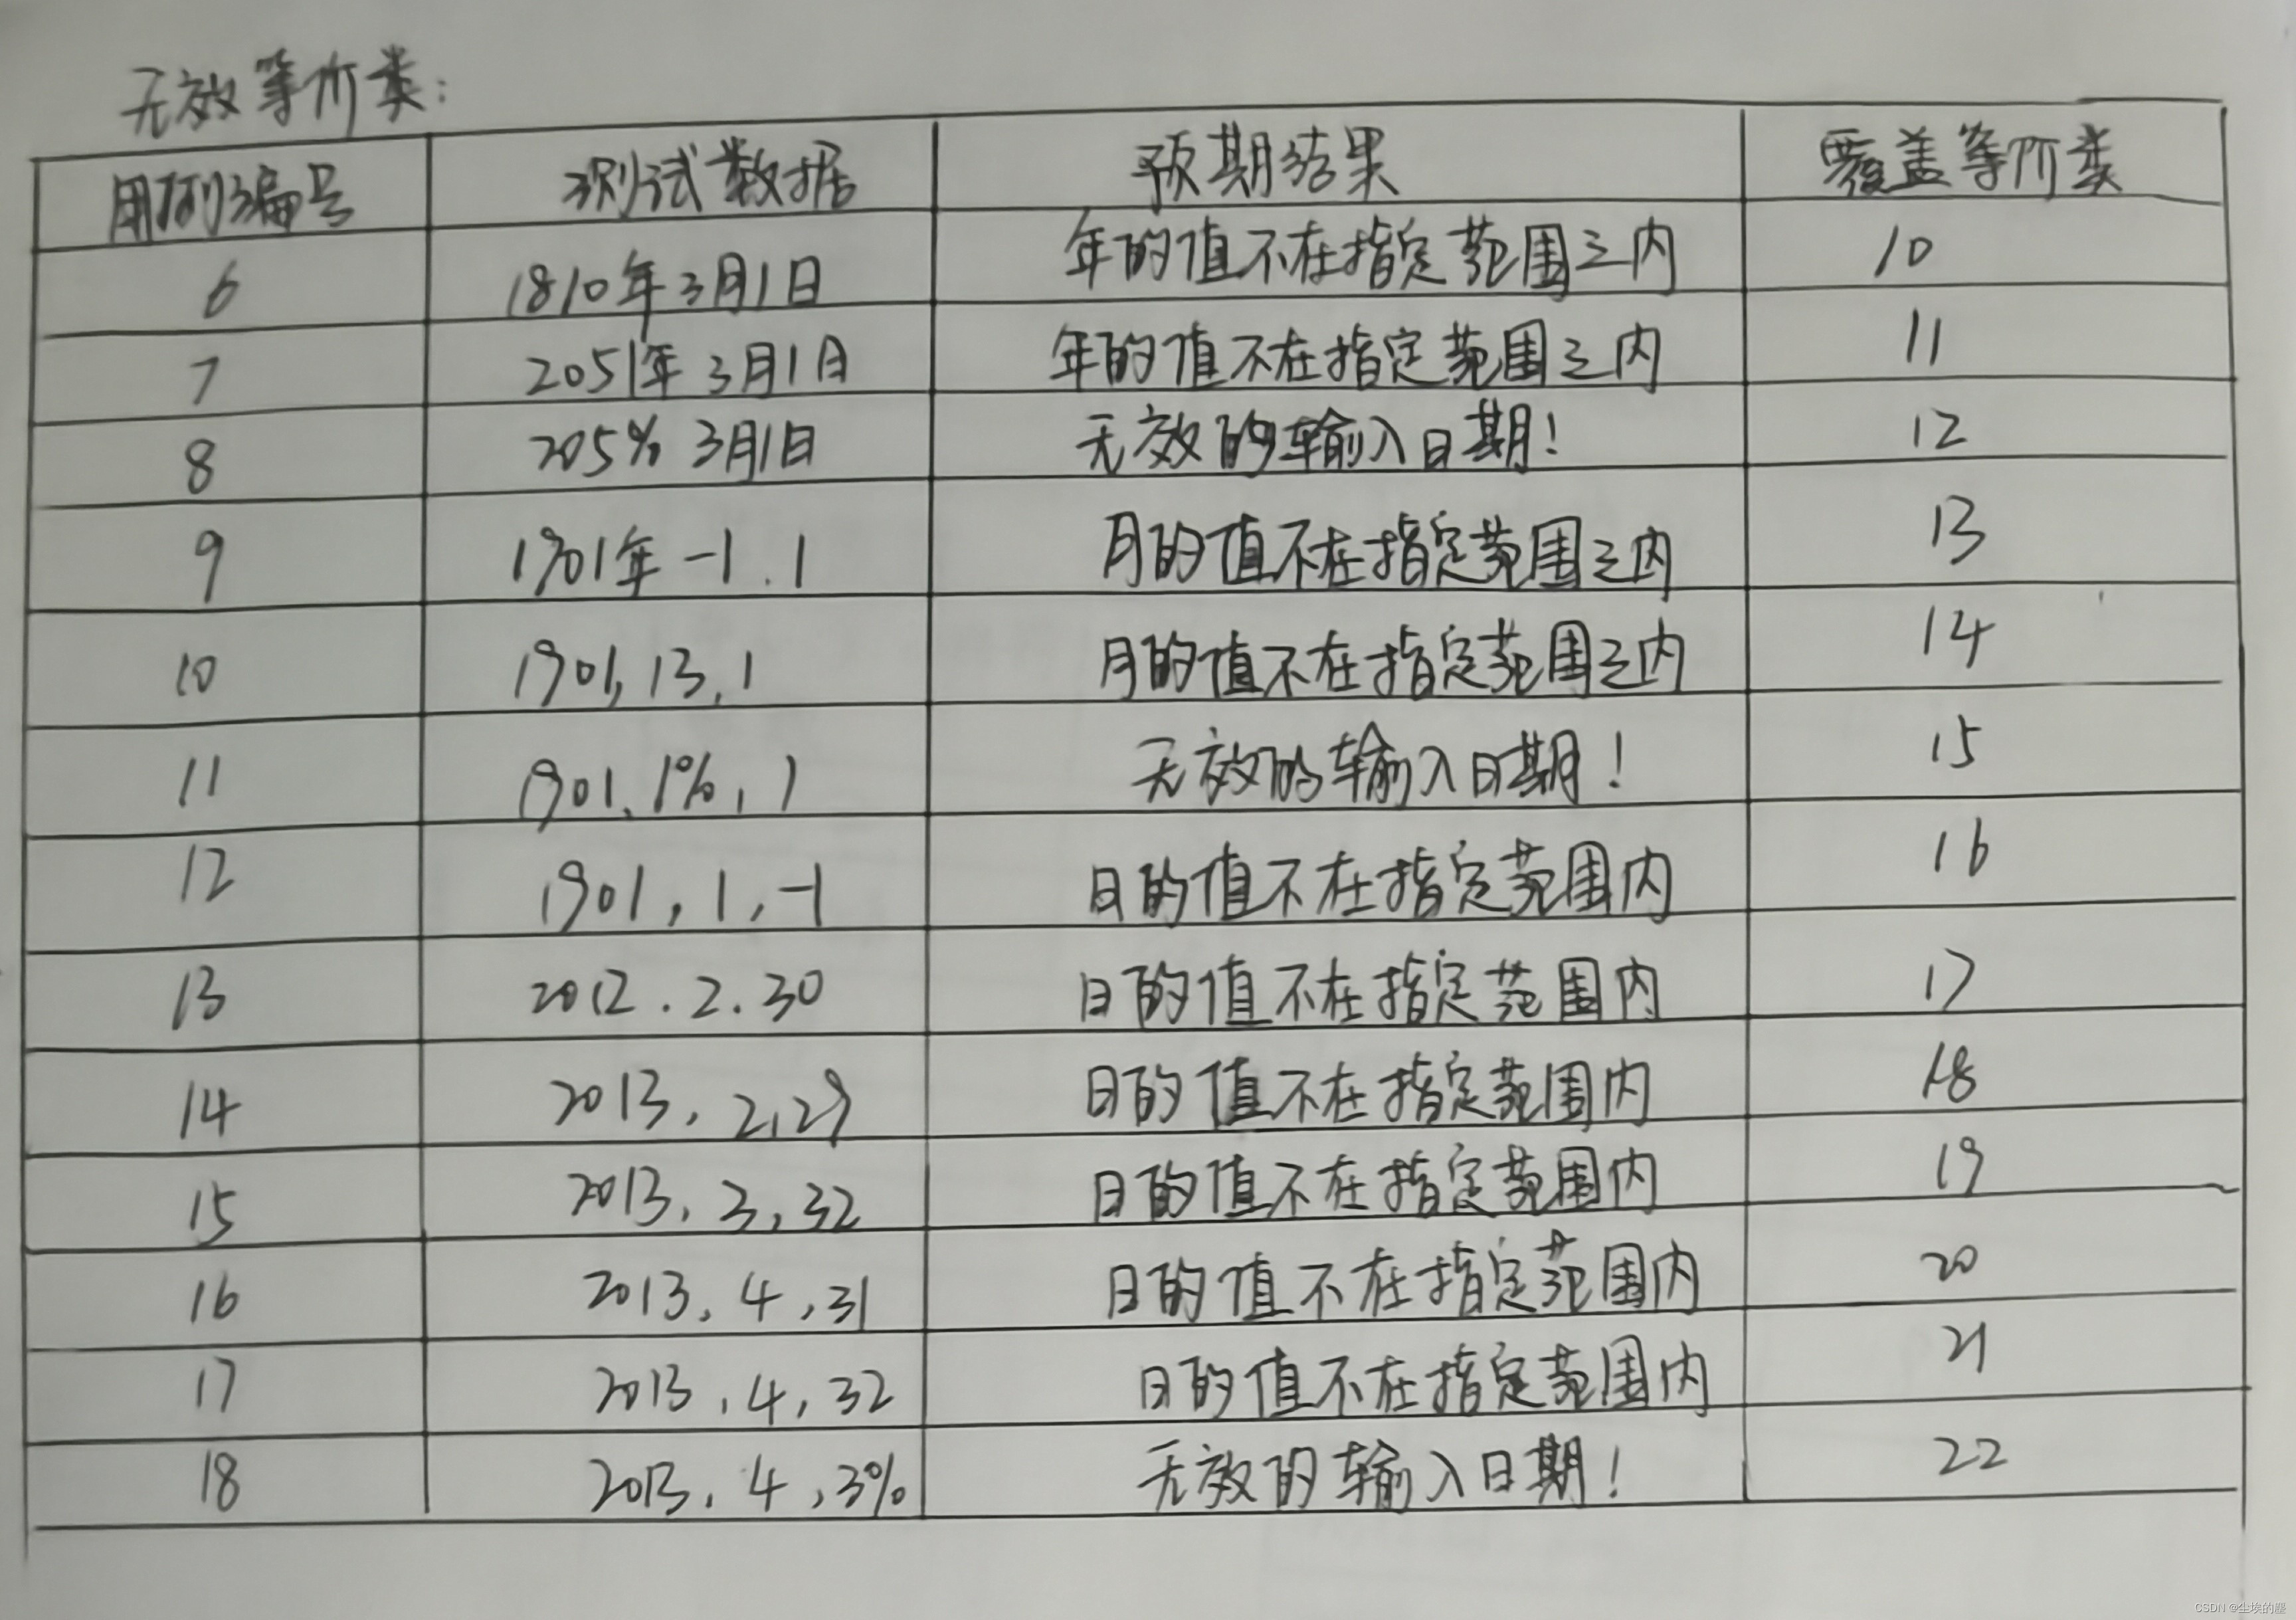 无效等价类:
用例编号 测试数据 预期结果 覆盖等价类
6 1810年3月1日 年的值不在指定范围之内 10
7 2051年3月1日 年的值不在指定范围之内 11
8 205% 3月1日 无效的输入日期! 12
9 1901年 -1.1 月的值不在指定范围之内 13
10 1901,13,1 月的值不在指定范围之内 14
11 1901.1%,1 无效的输入日期! 15
12 1901,1,-1 日的值不在指定范围内 16
13 2012.2.30 日的值不在指定范围内 17
14 2013,2,29 日的值不在指定范围内 18
15 2013,3,32 日的值不在指定范围内 19
16 2013,4,31 日的值不在指定范围内 20
17 2013,4,32 日的值不在指定范围内 21
18 2013,4,3% 无效的输入日期! 22
CSDN @尘埃的星